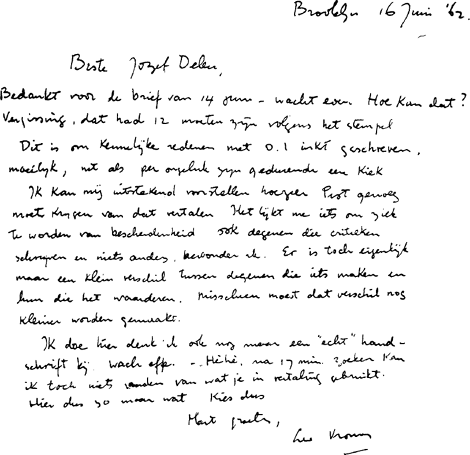 Brooklyn 16 Juni '62.
Beste Jozef Deleu,
Bedankt voor de brief van 14 juni - wacht even. Hoe kan dat?
Vergissing, dat had 12 moeten zijn volgens het stempel
Dit is om kennelijke redenen met O.I. inkt geschreven,
moeilijk, net als per ongeluk zijn gedurende een kiek
Ik kan mij uitstekend voorstellen hoezeer Piet genoeg
moet krijgen van dat vertalen Het lijkt me iets om ziek
te worden van bescheidenheid ook degenen die critieken
schrijven en niets anders, bewonder ik. Er is toch eigenlijk
maar een klein verschil tussen degenen die iets maken en
hun die het waarderen. Misschien moest dat verschil nog
kleiner worden gemaakt.
Ik doe hier denk ik ook nog maar een "echt" hand-
schrift bij wacht effe. - Hèhè, na 17 min. zoeken kan
ik toch niets vinden van wat je in vertaling gebruikt.
Hier dus zo maar wat Kies dus
Hart. groeten,
Leo Vroman